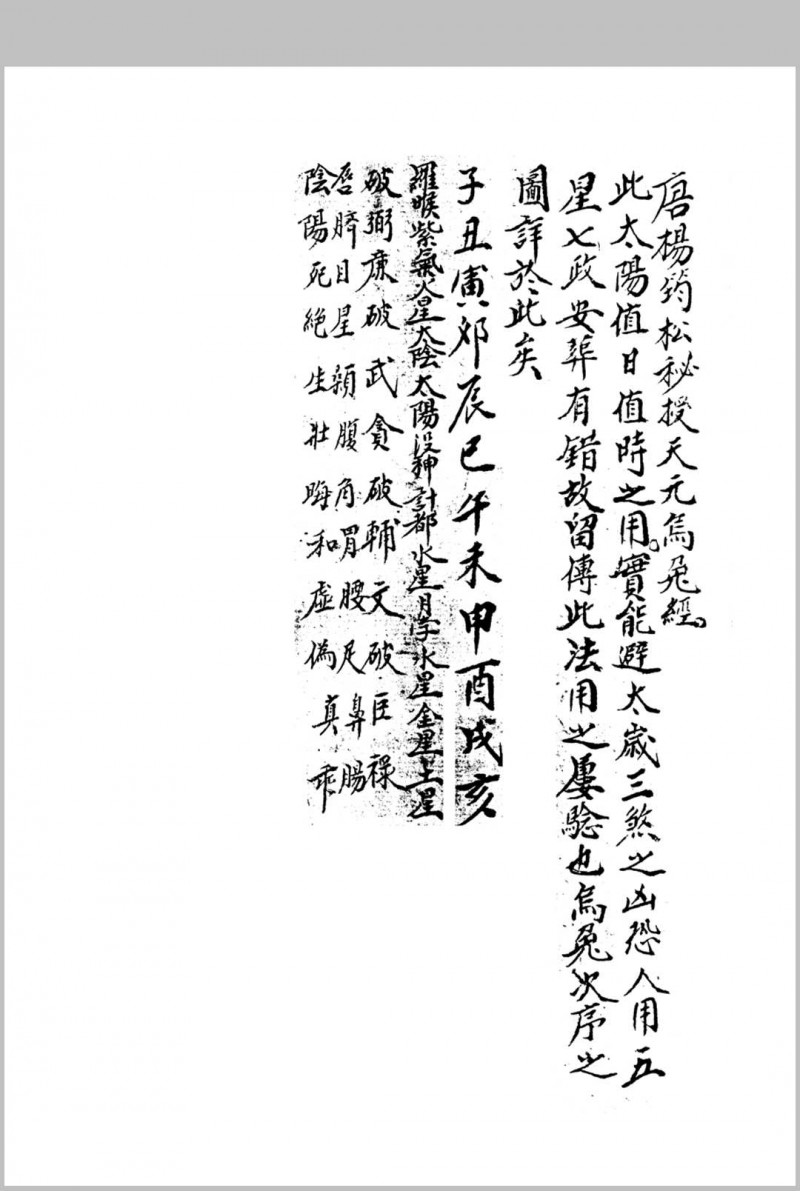 唐楊筠松秘授天元烏兔經。
此太陽值日值時之用。實能避太歲三煞之凶恐人用五
星七政安葬有錯故留傳此法用之屢驗也烏兔次序之
圖詳於此矣
子丑寅卯辰巳午未申酉戌亥
羅睺紫氣火星太陰太陽没神計都水星月孛水星金星土星
破弼廉破武貪破輔文破巨祿
唇臍目星頴腹角胃腰足鼻腸
陰陽死絕生壯晦和虛偽真乖